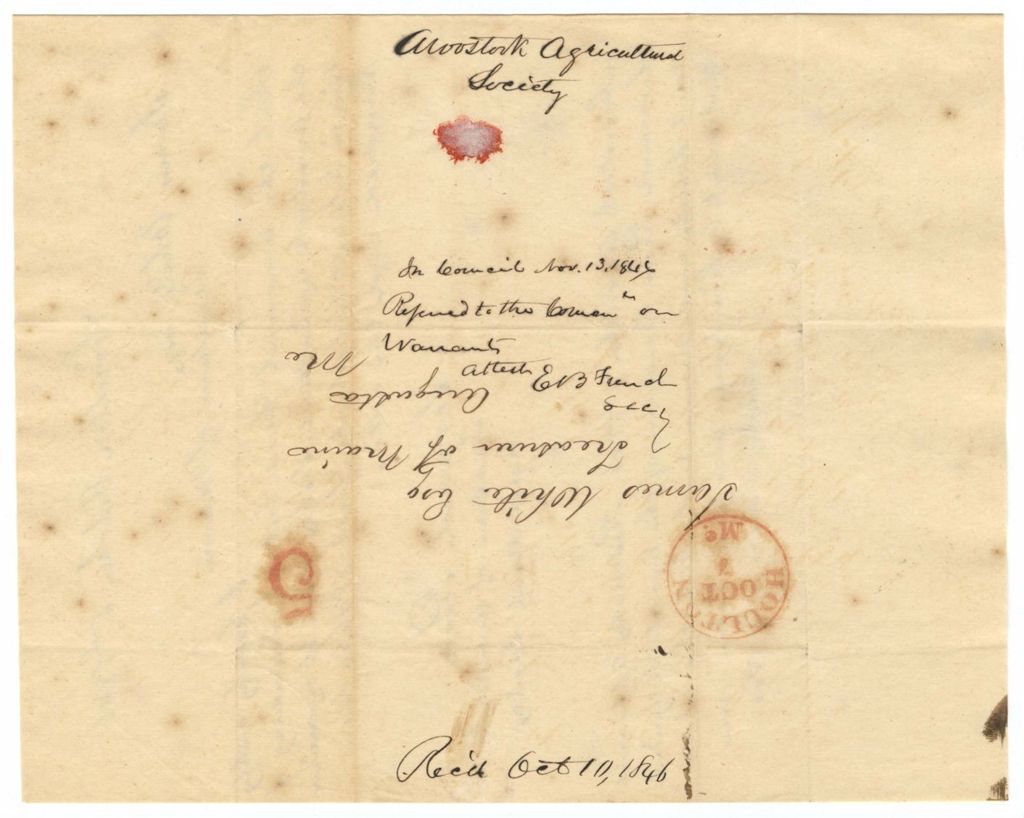 Aroostook Agricultural
Society
In Council Nov. 13, 1846
Referred to the Comm^ee on
Warrants
Attest E B French
Secy
James White Esq
Treasurer of Maine
Augusta
Me
HOULTON
OCT
Me.
5
Rec'd Oct 10, 1846